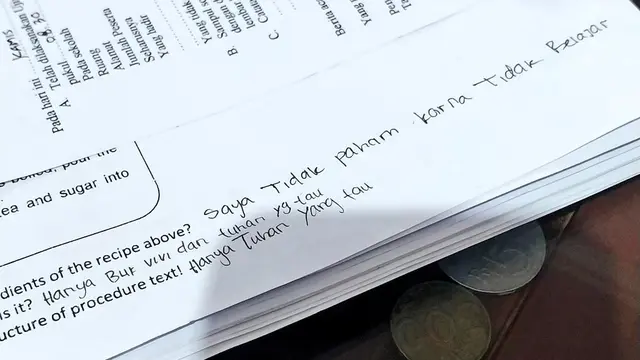 Pada hari ini Kamis
A. Telah dilaksanakan
pukul 08.30
Pada sekolah
Ruang
Alamat
Jumlah Peserta
Seharusnya
Yang hadir
Yang tidak
B.
C.
Berita
Yang
boiled, pour the
ea and sugar into
dients of the recipe above? Saya Tidak paham karna Tidak Belajar
is it? Hanya Buk vivi dan tuhan yg tau
ucture of procedure text! Hanya Tuhan yang tau